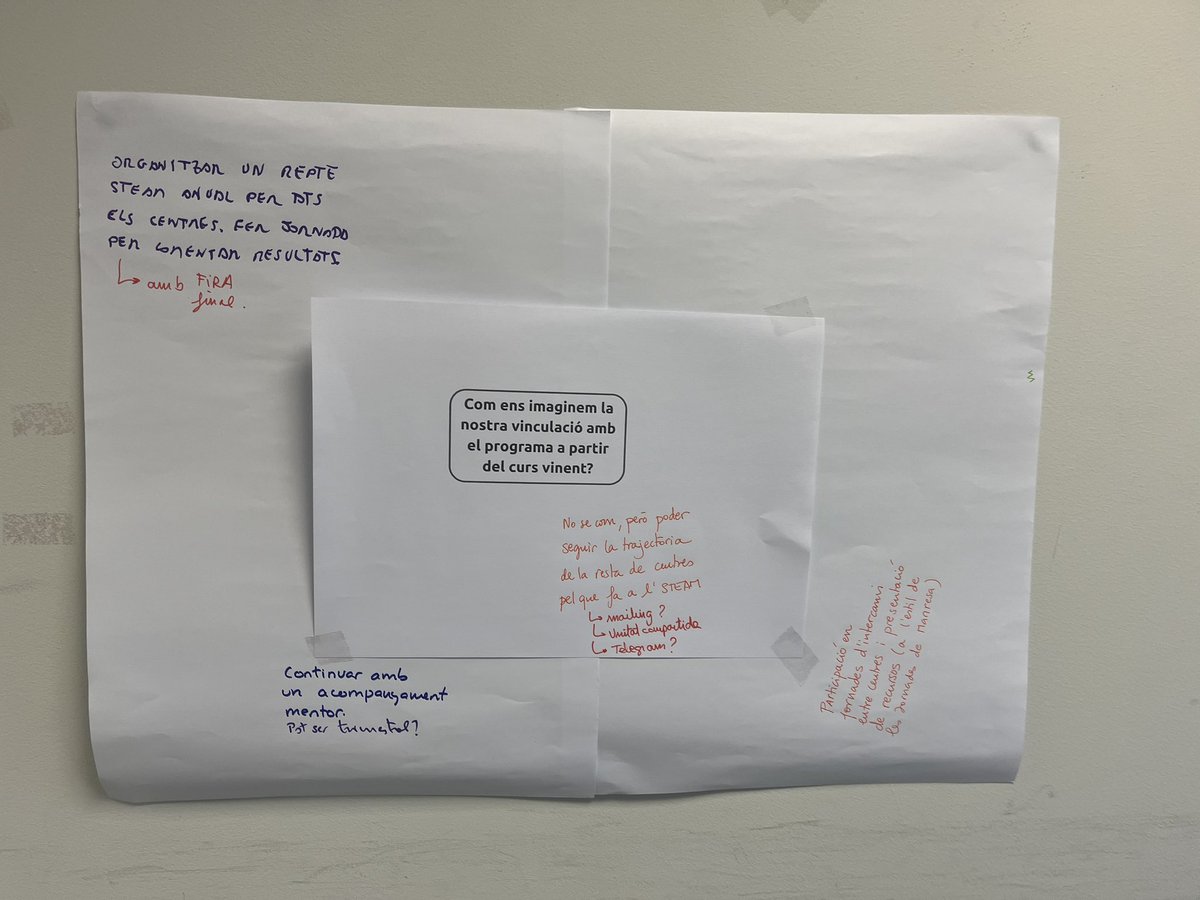 ORGANITZAR UN REPTE
STEAM ANUAL PER TOTS
ELS CENTRES. FER JORNADA
PER COMENTAR RESULTATS.
↳ amb FIRA
final.
Com ens imaginem la
nostra vinculació amb
el programa a partir
del curs vinent?
No se com, però poder
seguir la trajectòria
de la resta de centres
pel que fa a l'STEAM
↳ mailing?
↳ Unitat compartida
↳ Telegram?
Continuar amb
un acompanyament
mentor.
Pot ser trimestral?
Participació en
jornades d'intercanvi
entre centres i presentació
de recursos (a l'estil de
les Jornades de Manresa)